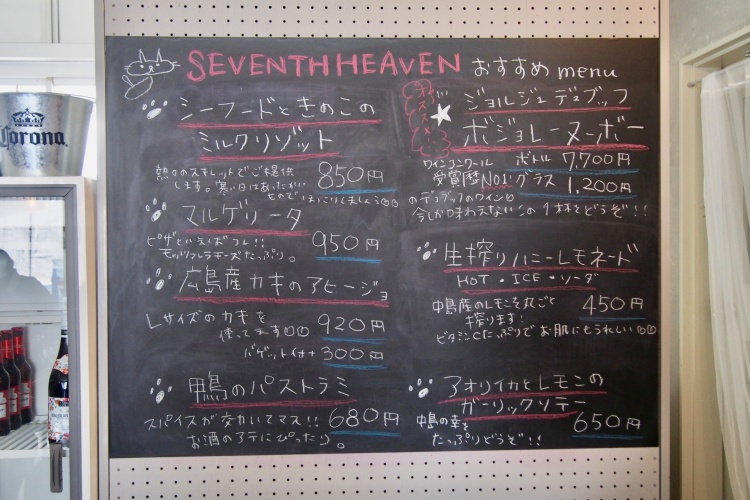 Corona
SEVENTH HEAVEN おすすめ menu
シーフードときのこの
ミルクリゾット
熱々のスキレットでご提供
します。寒い日はあったかい
もので ほっこりしましょう
850円
マルゲリータ
ピザといえばコレ!!
モッツァレラチーズたっぷり。
950円
広島産カキのアヒージョ
Lサイズのカキを
使ってます
920円
バゲット付き 300円
鴨のパストラミ
スパイスが効いてマス!!
お酒のアテにぴったり。
680円
オススメ
ジョルジュ デュブッフ
ボジョレーヌーボー
ワインコンクール
受賞歴NO1
ボトル 7,700円
グラス 1,200円
のデュブッフのワイン
今しか味わえないこの1杯をどうぞ!!
生搾りハニーレモネード
HOT・ICE・ソーダ
中島産のレモンを丸ごと
搾ります!
450円
ビタミンCたっぷりで お肌にもうれしい
アオリイカとレモンの
ガーリックソテー
中島の幸を
たっぷりどうぞ!!
650円